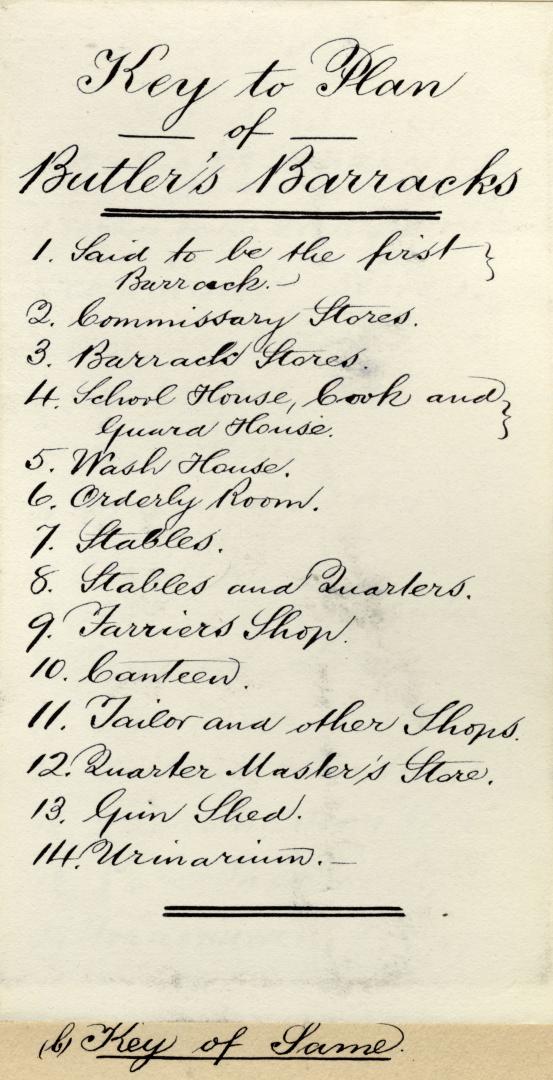 Key to Plan
of
Butler's Barracks
1. Said to be the first
Barrack.
2. Commissary Stores.
3. Barrack Stores.
4. School House, Cook and
Guard House.
5. Wash House.
6. Orderly Room.
7. Stables.
8. Stables and Quarters.
9. Farriers Shop.
10. Canteen.
11. Tailor and other Shops.
12. Quarter Master's Store.
13. Gun Shed.
14. Urinarium.
(b) Key of Same.